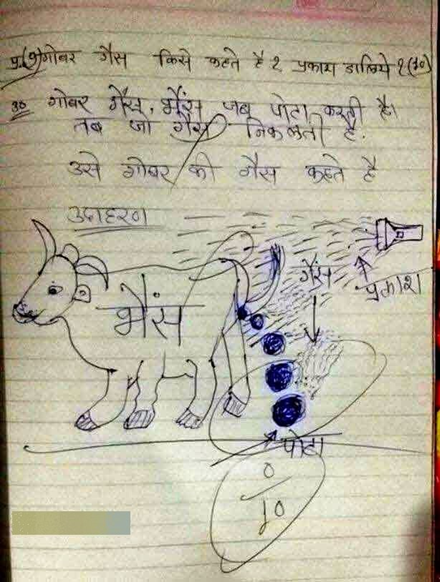 प्र.(१) गोबर गैस किसे कहते है? प्रकाश डालिये? (10)
उ० गोबर गैस, भैंस जब पोटा करती है।
तब जो गैस निकलती है.
उसे गोबर की गैस कहते है
उदाहरण
गैस
प्रकाश
भैंस
पोटा
0
10